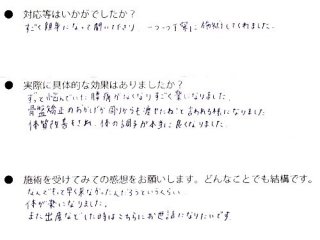 ● 対応等はいかがでしたか？
すごく親身になって聞いて下さり 一つ一つ丁寧に施術してくれました。
● 実際に具体的な効果はありましたか？
ずっと悩んでいた腰痛がなくなりすごく楽になりました。
骨盤矯正のおかげか周りからも痩せたね と言われる様になりました
体質改善もされ、体の調子が本当に良くなりました。
● 施術を受けてみての感想をお願いします。どんなことでも結構です。
なんでもっと早く来なかったんだろうというくらい
体が楽になりました。
また出産などした時はこちらにお世話になりたいです